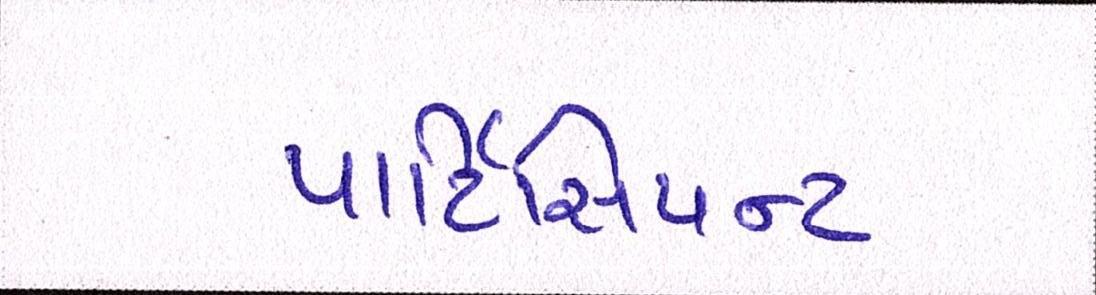 પાર્ટિસિપન્ટ